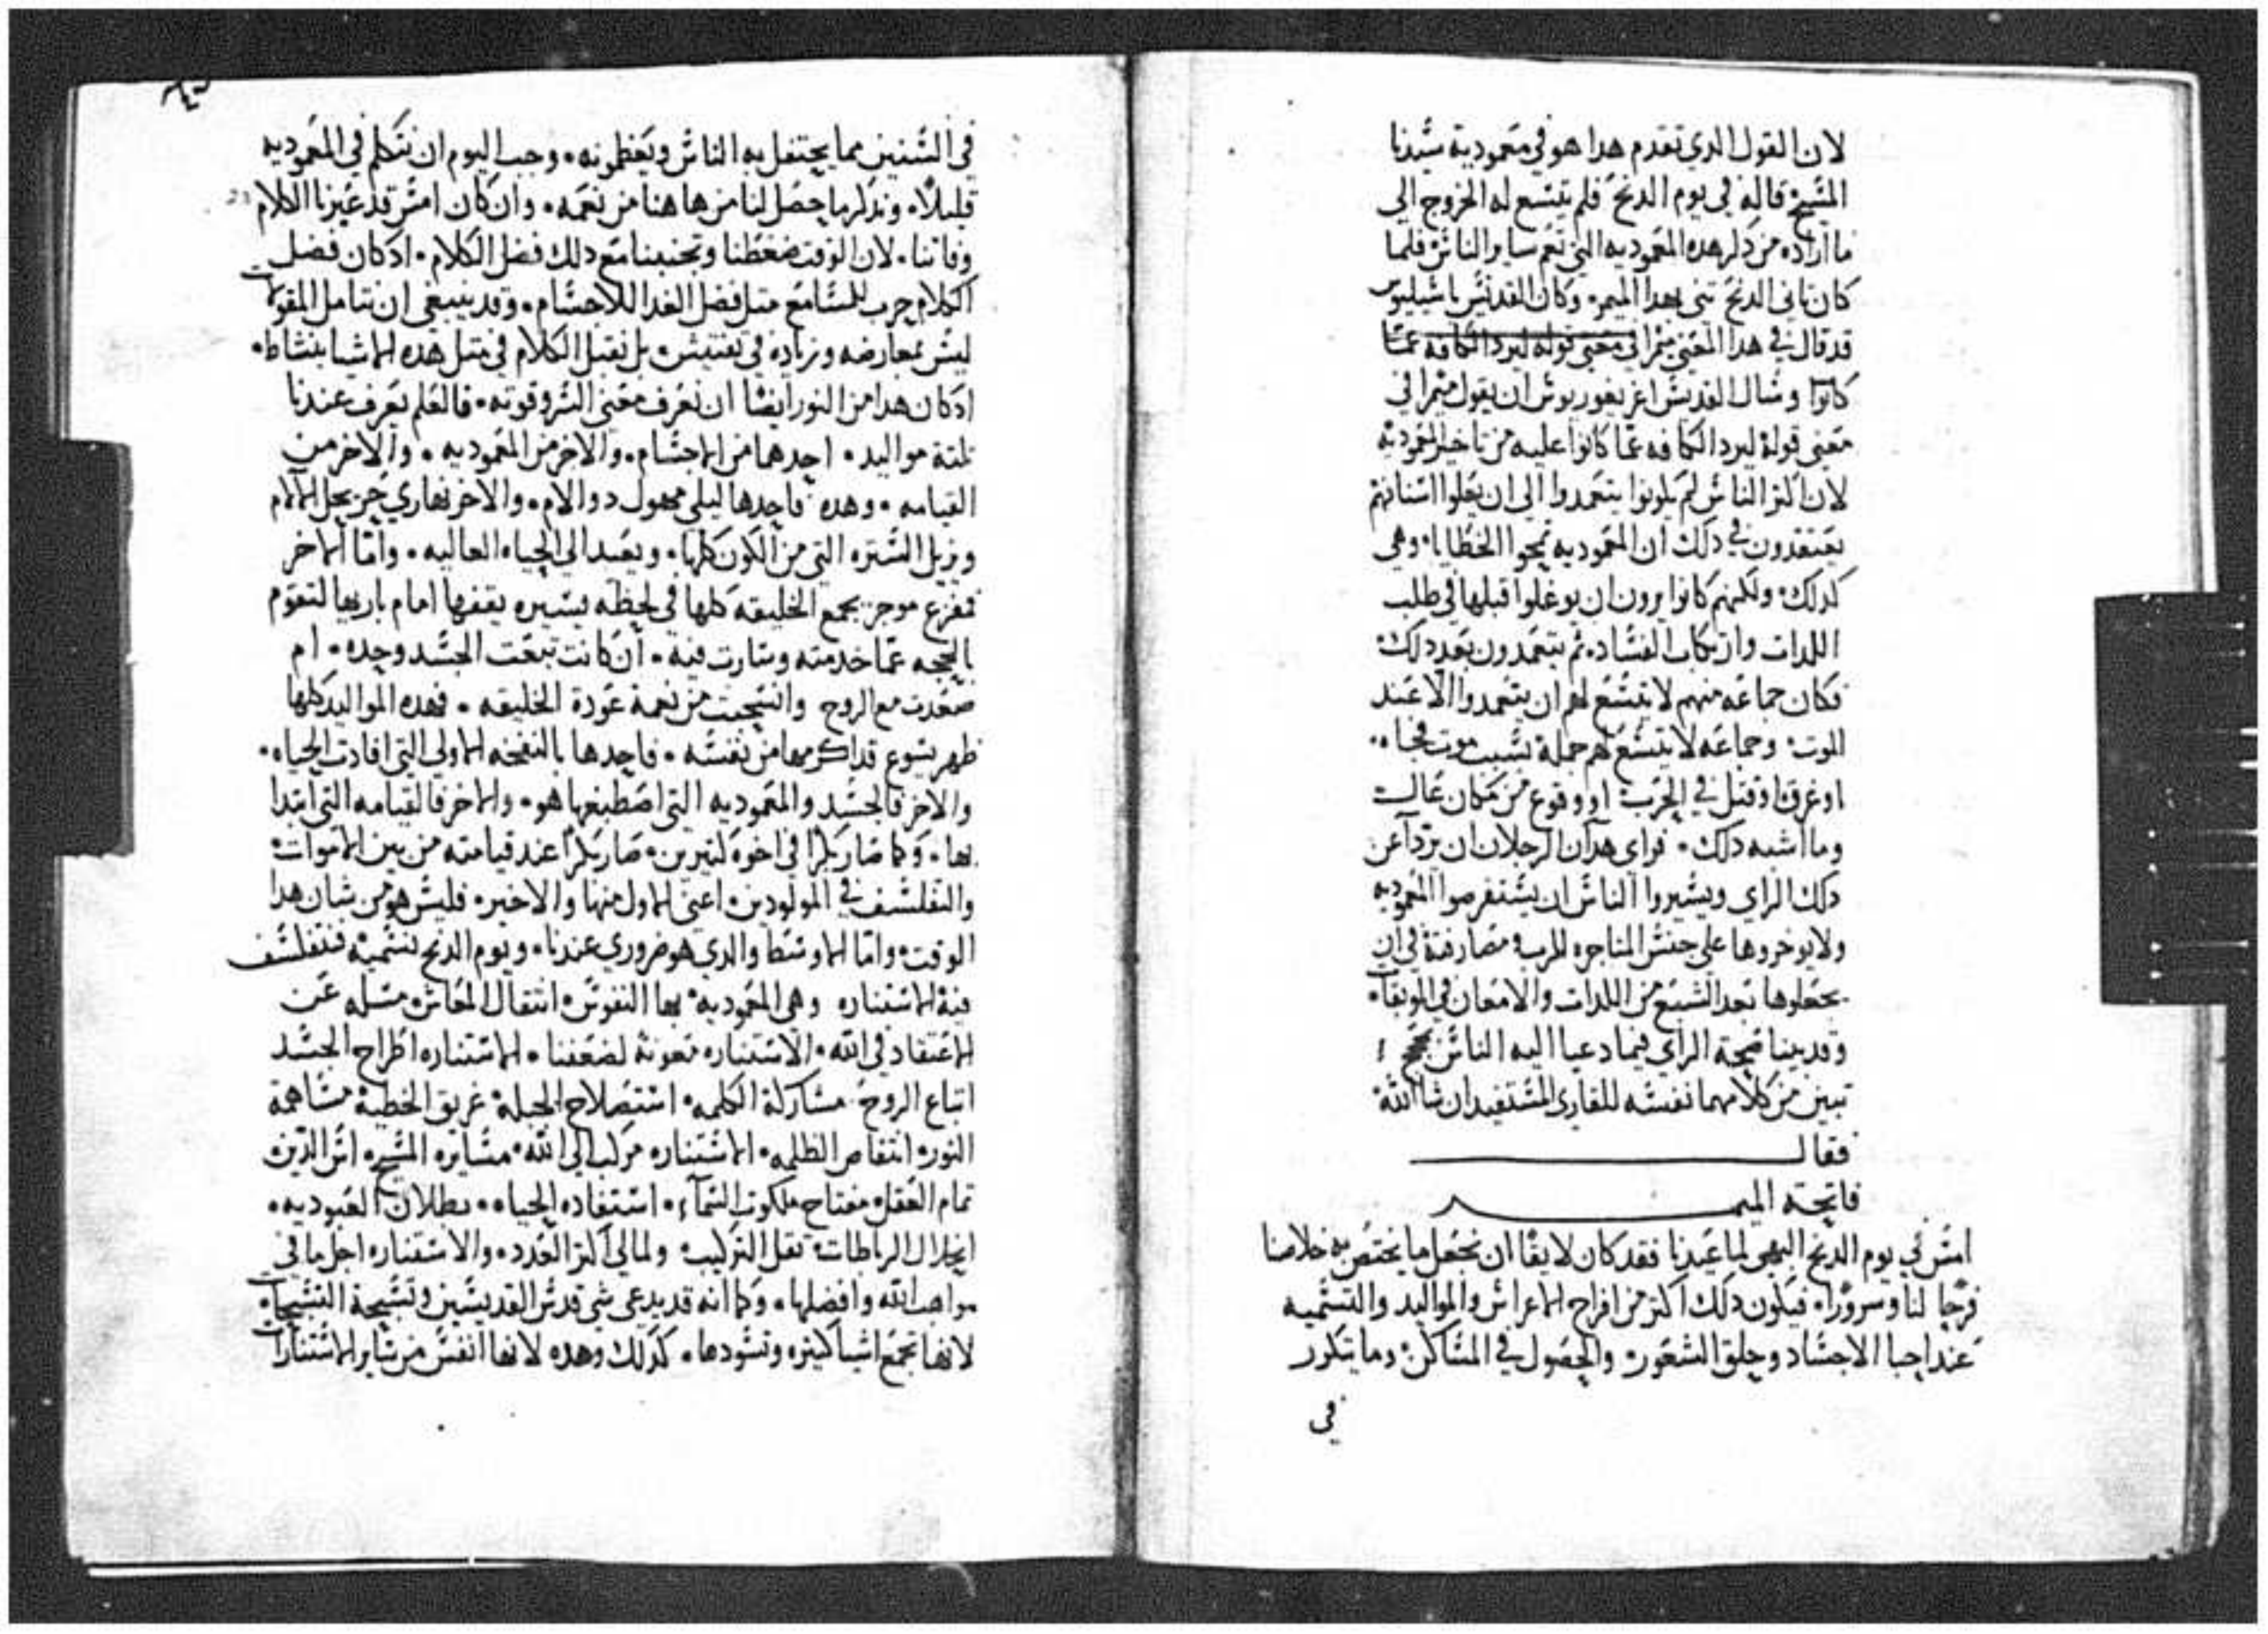 لان القول الدي تقدم هدا هو في معمودية سيدنا
المسيح قاله في يوم الدنح فلم يتسع له الخروج الي
ما اراده من دكر هده المعموديه التي تعم ساير الناس فلما
كان تاني الدنح تني بهدا الميمر وكان القديس باسيليوس
قد قال في هدا المعني ميمرا في معني قوله ليرد الكافه عما
كانوا وسال القديس اغريغوريوس ان يقول ميمرا في
معني قوله ليرد الكافه عما كانوا عليه من تاخير المعموديه
لان اكتر الناس لم يكونوا يتعمدوا الي ان يعلوا اسنانهم
يعتقدون في دلك ان المعموديه تمحوا الخطايا وهي
كدلك ولكنهم كانوا يرون ان يوغلوا قبلها في طلب
اللدات وارتكاب الفساد تم يتعمدون بعد دلك
فكان جماعه منهم لا يتسع لهم ان يتعمدوا الا عند
الموت وجماعه لا يتسع لهم جملة بسبب موت فجاه
او غرق او قتل في الحرب او وقوع من مكان عال
وما اشبه دلك فراي هدان الرجلان ان يردا عن
دلك الراي ويشيروا الناس ان يستفرصوا المعموديه
ولا يوخروها علي جنس المتاجره للرب مصارفة في ان
يجعلوها بعد الشبع من اللدات والامعان في الموبقات
وقد بينا صحة الراي فيما دعيا اليه الناس
تبين من كلامهما نفسه للقاري المستفيد ان شا الله
فقال
فاتحة الميمر
امس في يوم الدنح البهي لما عيدنا فقد كان لايقا ان نجعل ما يختص به خلاصنا
فرحا لنا وسرورا فيكون دلك اكتر من افراح الاعراس والمواليد والتسميه
عند احبا الاجساد وحلق الشعور والحصول في المساكن وما يتكرر
في
في السنين مما يحتفل به الناس ويعظمونه وجب اليوم ان نتكلم في المعموديه
قليلا وندكر ما حصل لنا من هاهنا من نعمه وان كان امس قد عبرنا الكلام
وفاتنا لان الوقت ضغطنا وتجنبنا مع دلك فضل الكلام اد كان فضل
الكلام حرب للمسامع متل فضل الغدا للاجسام وقد ينبغي ان نتامل المقولات
ليس بمعارضه وزياده في تفتيش بل نقبل الكلام في متل هده الاشيا بنشاط
اد كان هدا من النور ايضا ان نعرف معني السر وقوته فالعلم يعرف عندنا
تلتة مواليد احدهما من الاجسام والاخر من المعموديه والاخر من
القيامه وهده فاحدها ليلي مجهول دو الام والاخر نهاري حر يحل الالام
ويزيل الستره التي من الكون كلها ويعيد الي الحياه العاليه واما الاخر
فمفزع موجز يجمع الخليقه كلها في لحظه يسيره يقفها امام باريها لتقوم
بالحجه عما خدمته وسارت فيه ان كانت تبعت الجسد وحده ام
صعدت مع الروح واستحيت من نعمة عودة الخليقه فهده المواليد كلها
ظهر يسوع قد اكرمها من نفسه فاحدها بالنفخه الاولي التي افادت الحياه
والاخر فالجسد والمعموديه التي اصطبغها هو والاخر فالقيامه التي ابتدا
بها وكما صار بكرا في اخوه كتيرين صار بكرا عند قيامته من بين الاموات
والتفلسف في المولودين اعني الاول منها والاخير فليس هو من شان هدا
الوقت واما الاوسط والدي هو ضروري عندنا ويوم الدنح تسميه فنتفلسف
فيه الاستناره وهي المعموديه بها النفوس انتقال المعاش مسله عن
الاعتقاد في الله الاستناره معونة لضعفنا الاستناره اطراح الجسد
اتباع الروح مشاركة الكلمه استصلاح الجبلة غريق الخطية مساهمة
النور انتقاص الظلمه الاستناره مركب الي الله مسايره المسيح اس الدين
تمام العقل مفتاح ملكوت السماء استفاده الحياه بطلان العبوديه
انحلال الرباطات نقل التركيب ولمالي اكتر العدد والاستناره اجل ما في
مواهب الله وافضلها وكما انه قد يدعي شي قدس القديسين وتسبحة التسبحات
لانها تجمع اشيا كتيره وتسودها كدلك وهده لانها انفس من ساير الاستنارات